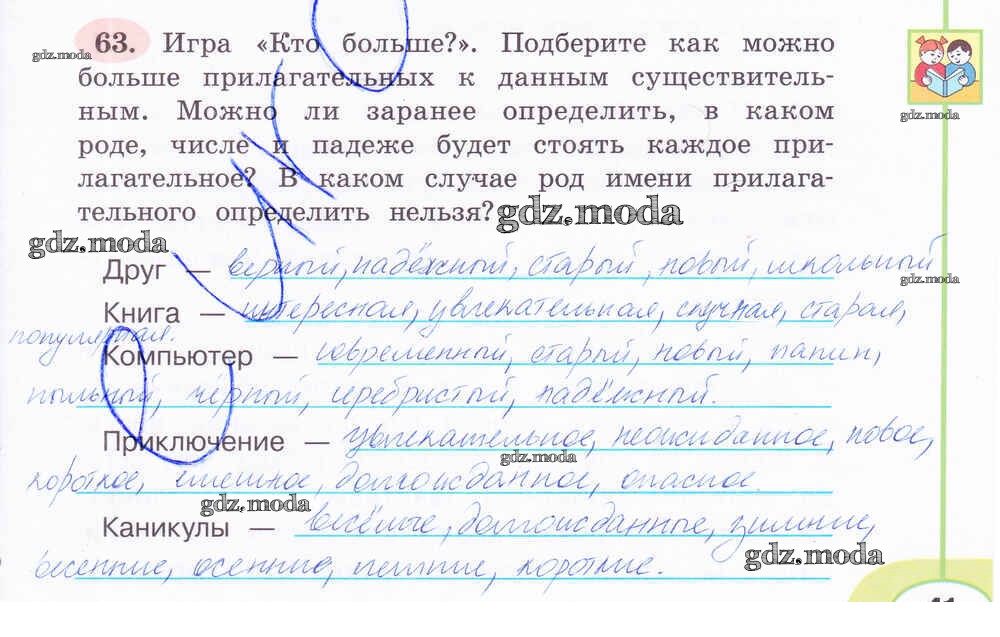 63. Игра «Кто больше?». Подберите как можно
gdz.moda
больше прилагательных к данным существитель-
ным. Можно ли заранее определить, в каком
gdz.moda
роде, числе и падеже будет стоять каждое при-
лагательное? В каком случае род имени прилага-
тельного определить нельзя? gdz.moda
gdz.moda
Друг — верный, надёжный, старый, новый, школьный
gdz.moda
Книга — интересная, увлекательная, скучная, старая,
популярная.
Компьютер — современный, старый, новый, папин,
пыльный, чёрный, серебристый, надёжный.
Приключение — увлекательное, неожиданное, новое,
gdz.moda
короткое, смешное, долгожданное, опасное.
gdz.moda
Каникулы — весёлые, долгожданные, зимние,
gdz.moda
весенние, осенние, летние, короткие.